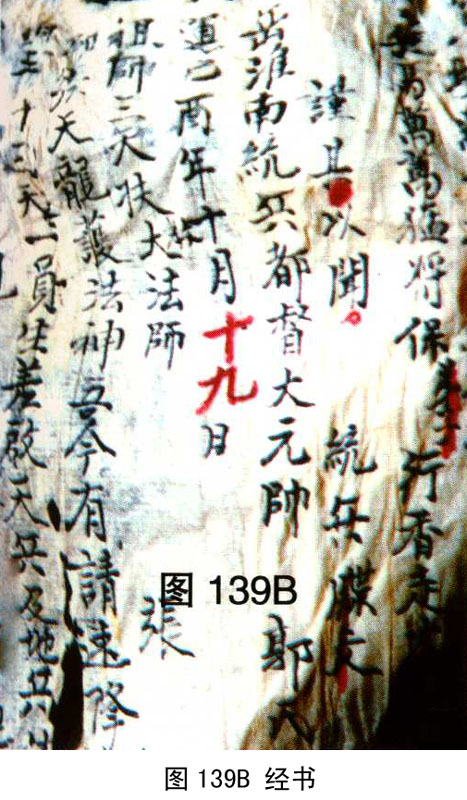 馬萬萬猛将保奉行香走
謹具以聞 統兵牒文
岳淮南統兵都督大元帥 郭氏
運己酉年十月十九日
祖師三天扶大法師 張
天龍護法神吾今有請速降
十三天 員生差啟天兵及地兵
图 139B
图 139B 经书